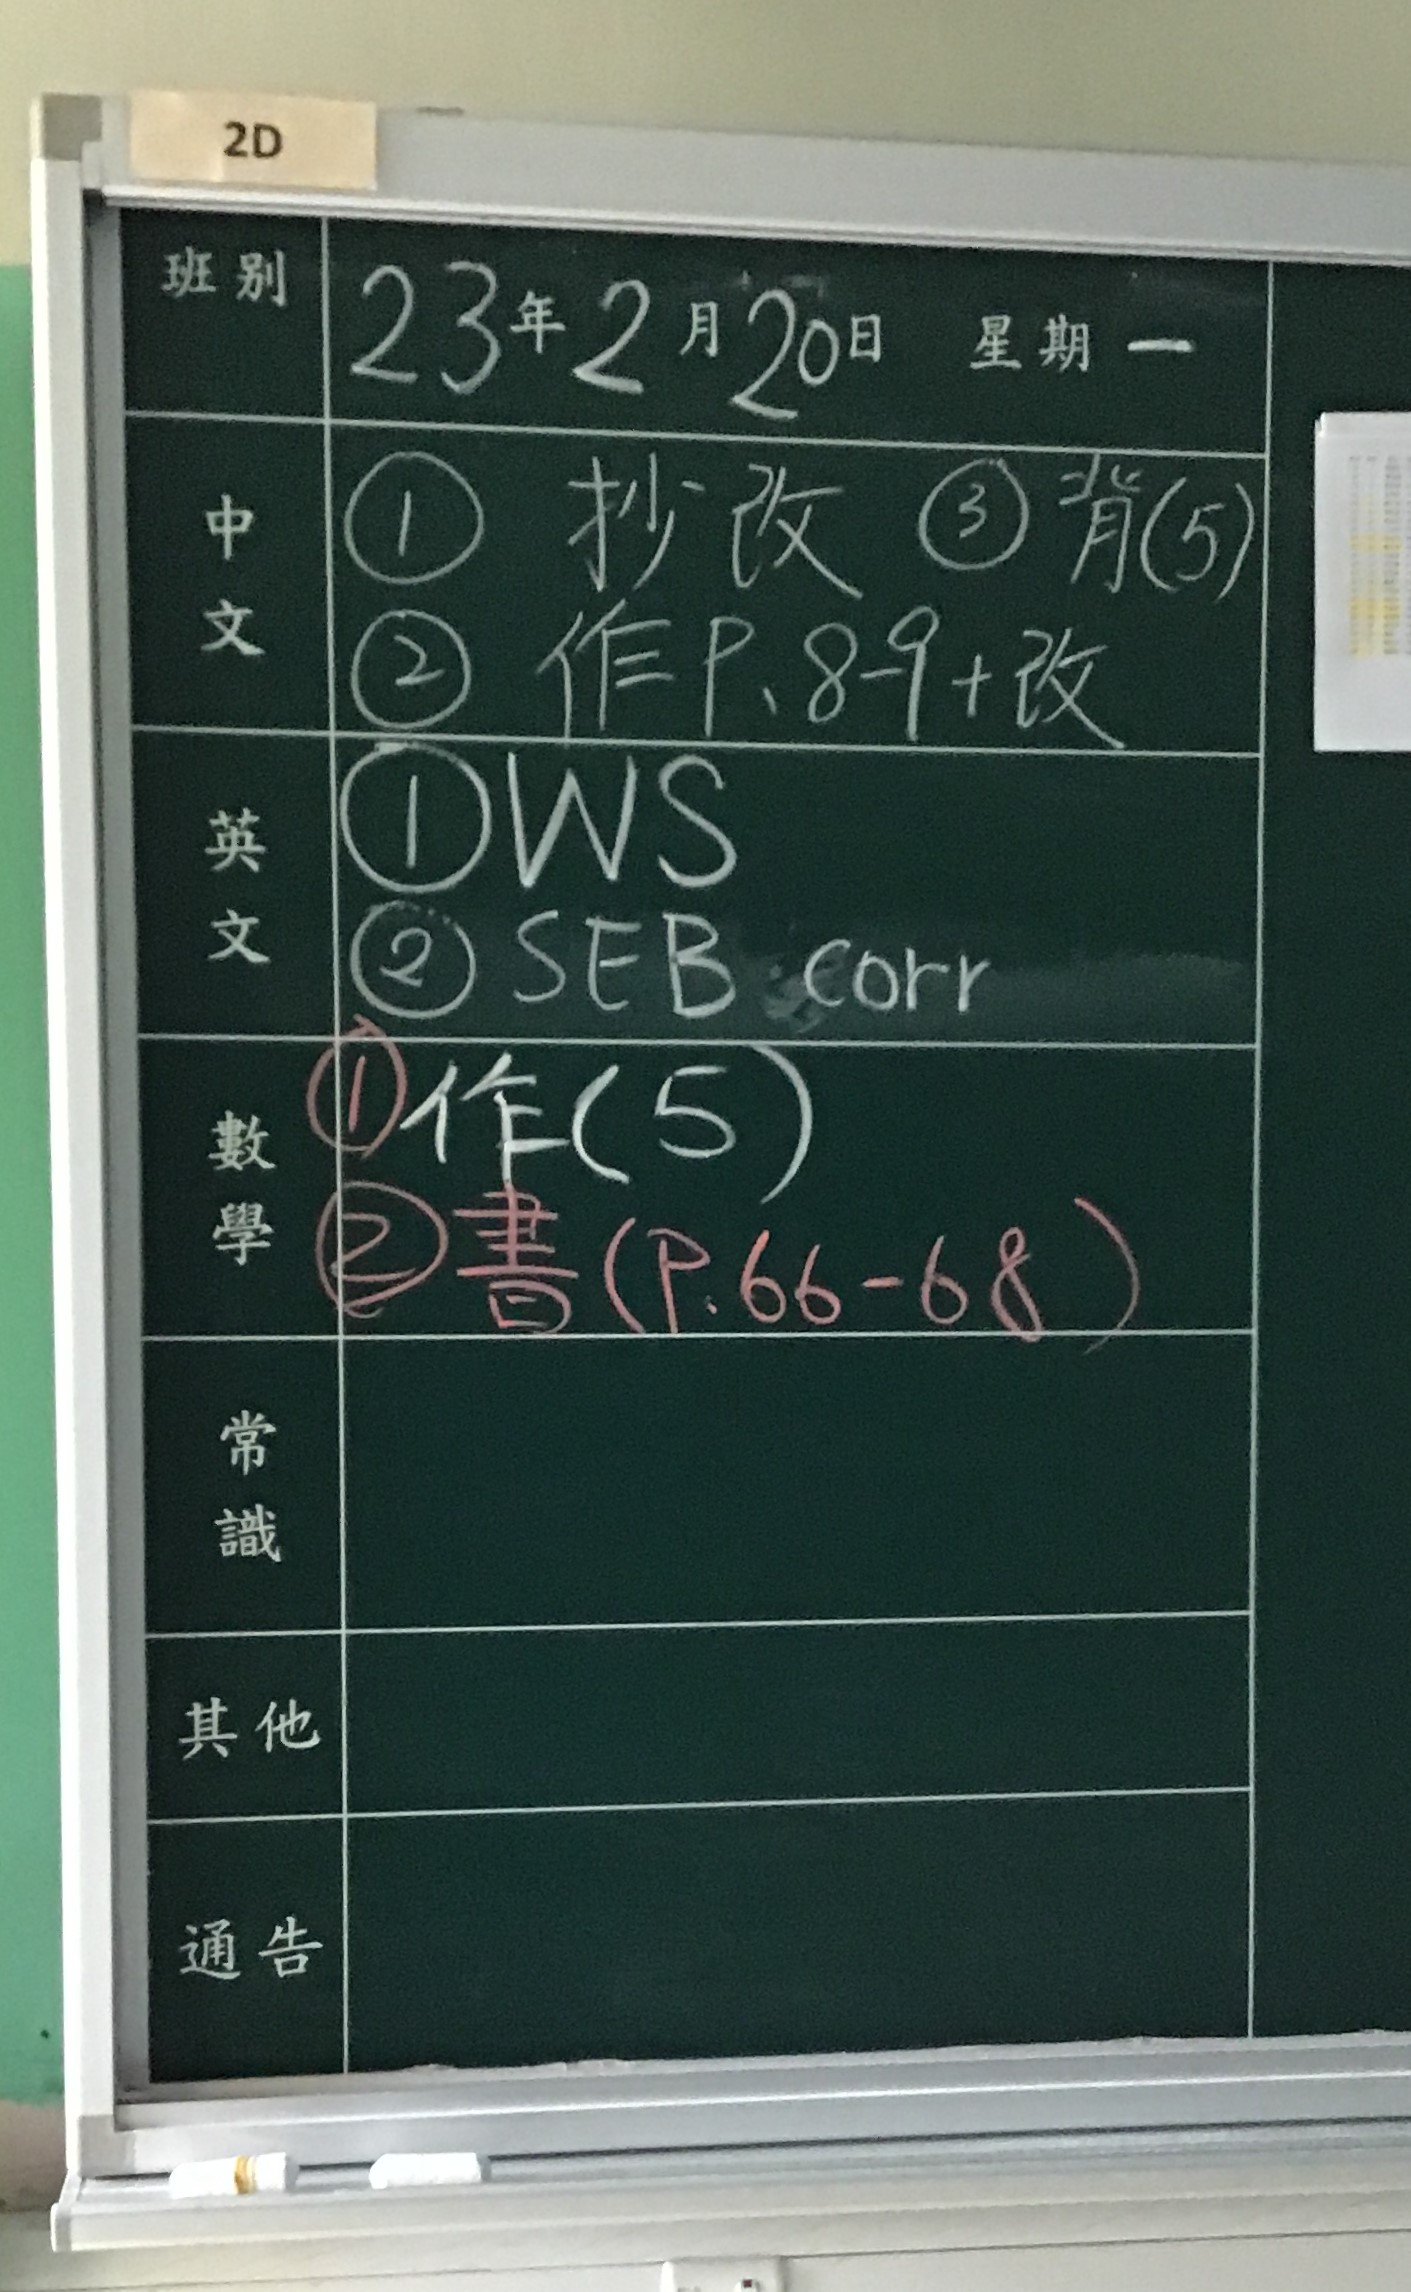 2D
班別 23年2月20日 星期一
中文 ① 抄改 ③ 背(5)
② 作P.8-9+改
英文 ① WS
② SEB corr
數學 ① 作(5)
② 書(P.66-68)
常識
其他
通告